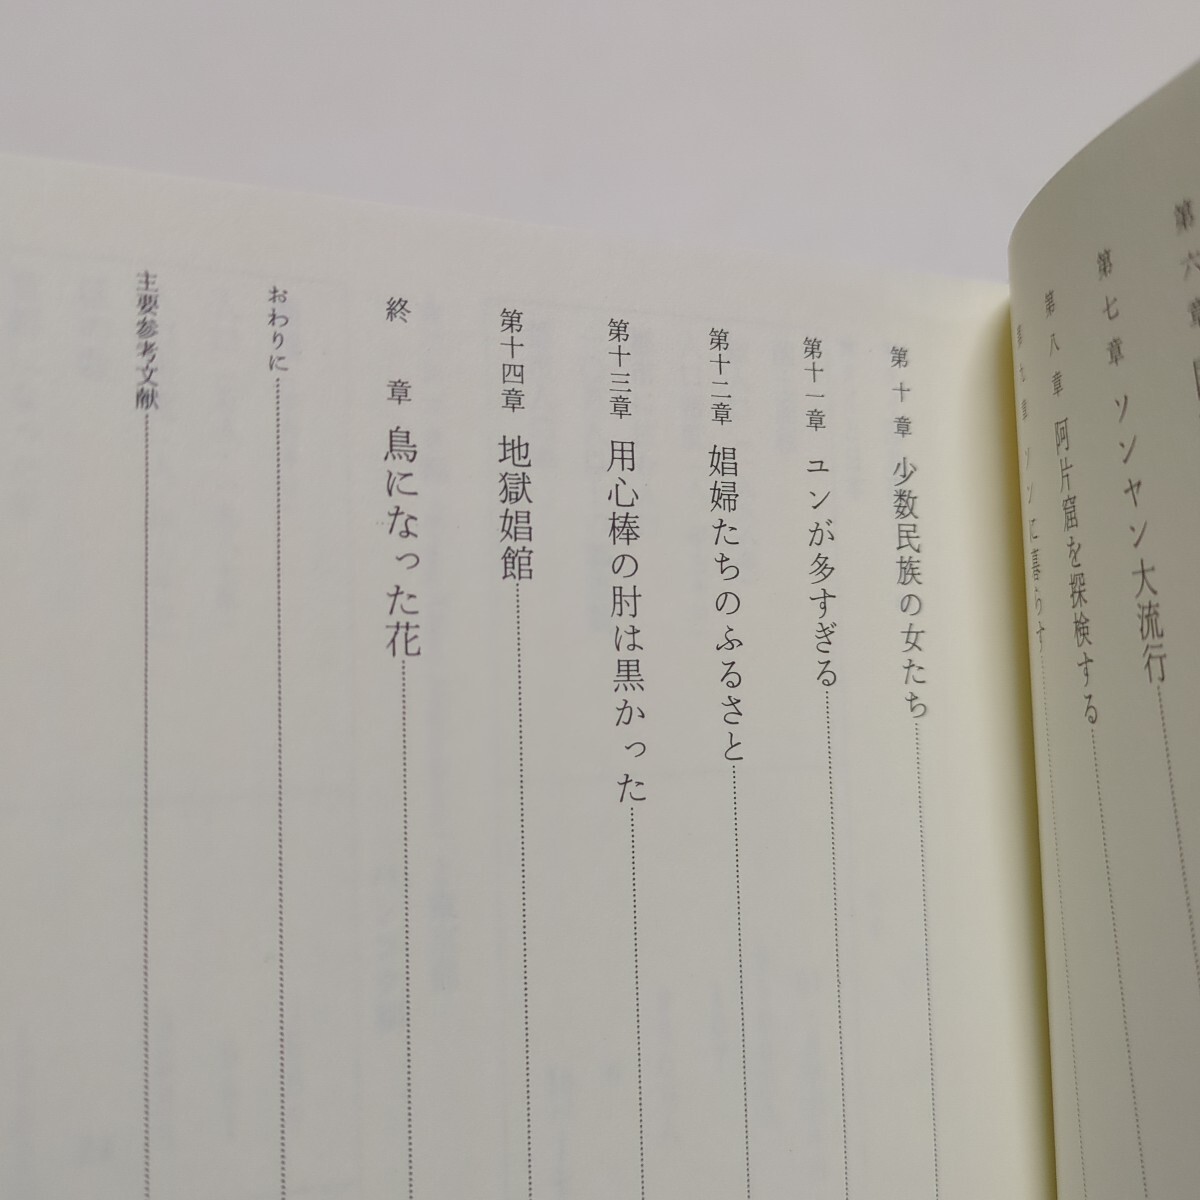 第六章
第七章 ソンヤン大流行
第八章 阿片窟を探検する
第九章 ソンに暮らす
第十章 少数民族の女たち
第十一章 ユンが多すぎる
第十二章 娼婦たちのふるさと
第十三章 用心棒の肘は黒かった
第十四章 地獄娼館
終章 鳥になった花
おわりに
主要参考文献